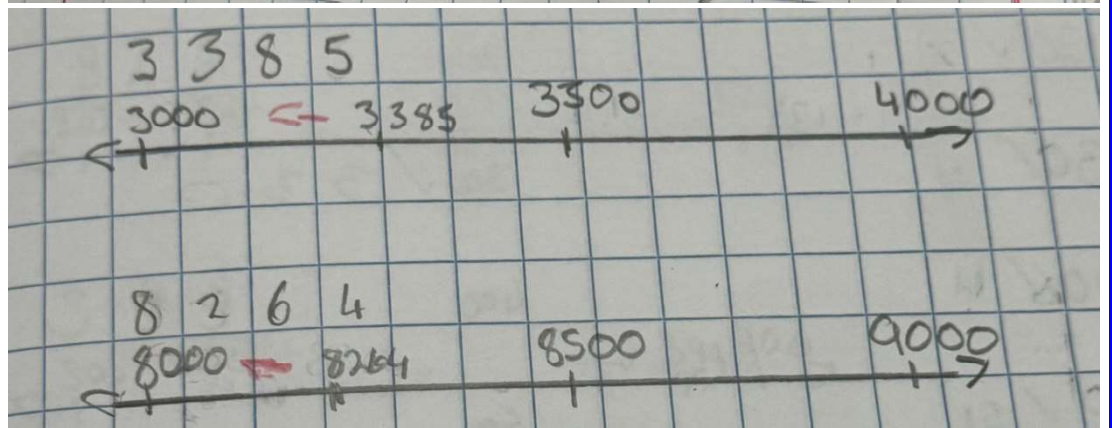 3 3 8 5
3000 ← 3385 3500 4000
8 2 6 4
8000 ← 8264 8500 9000